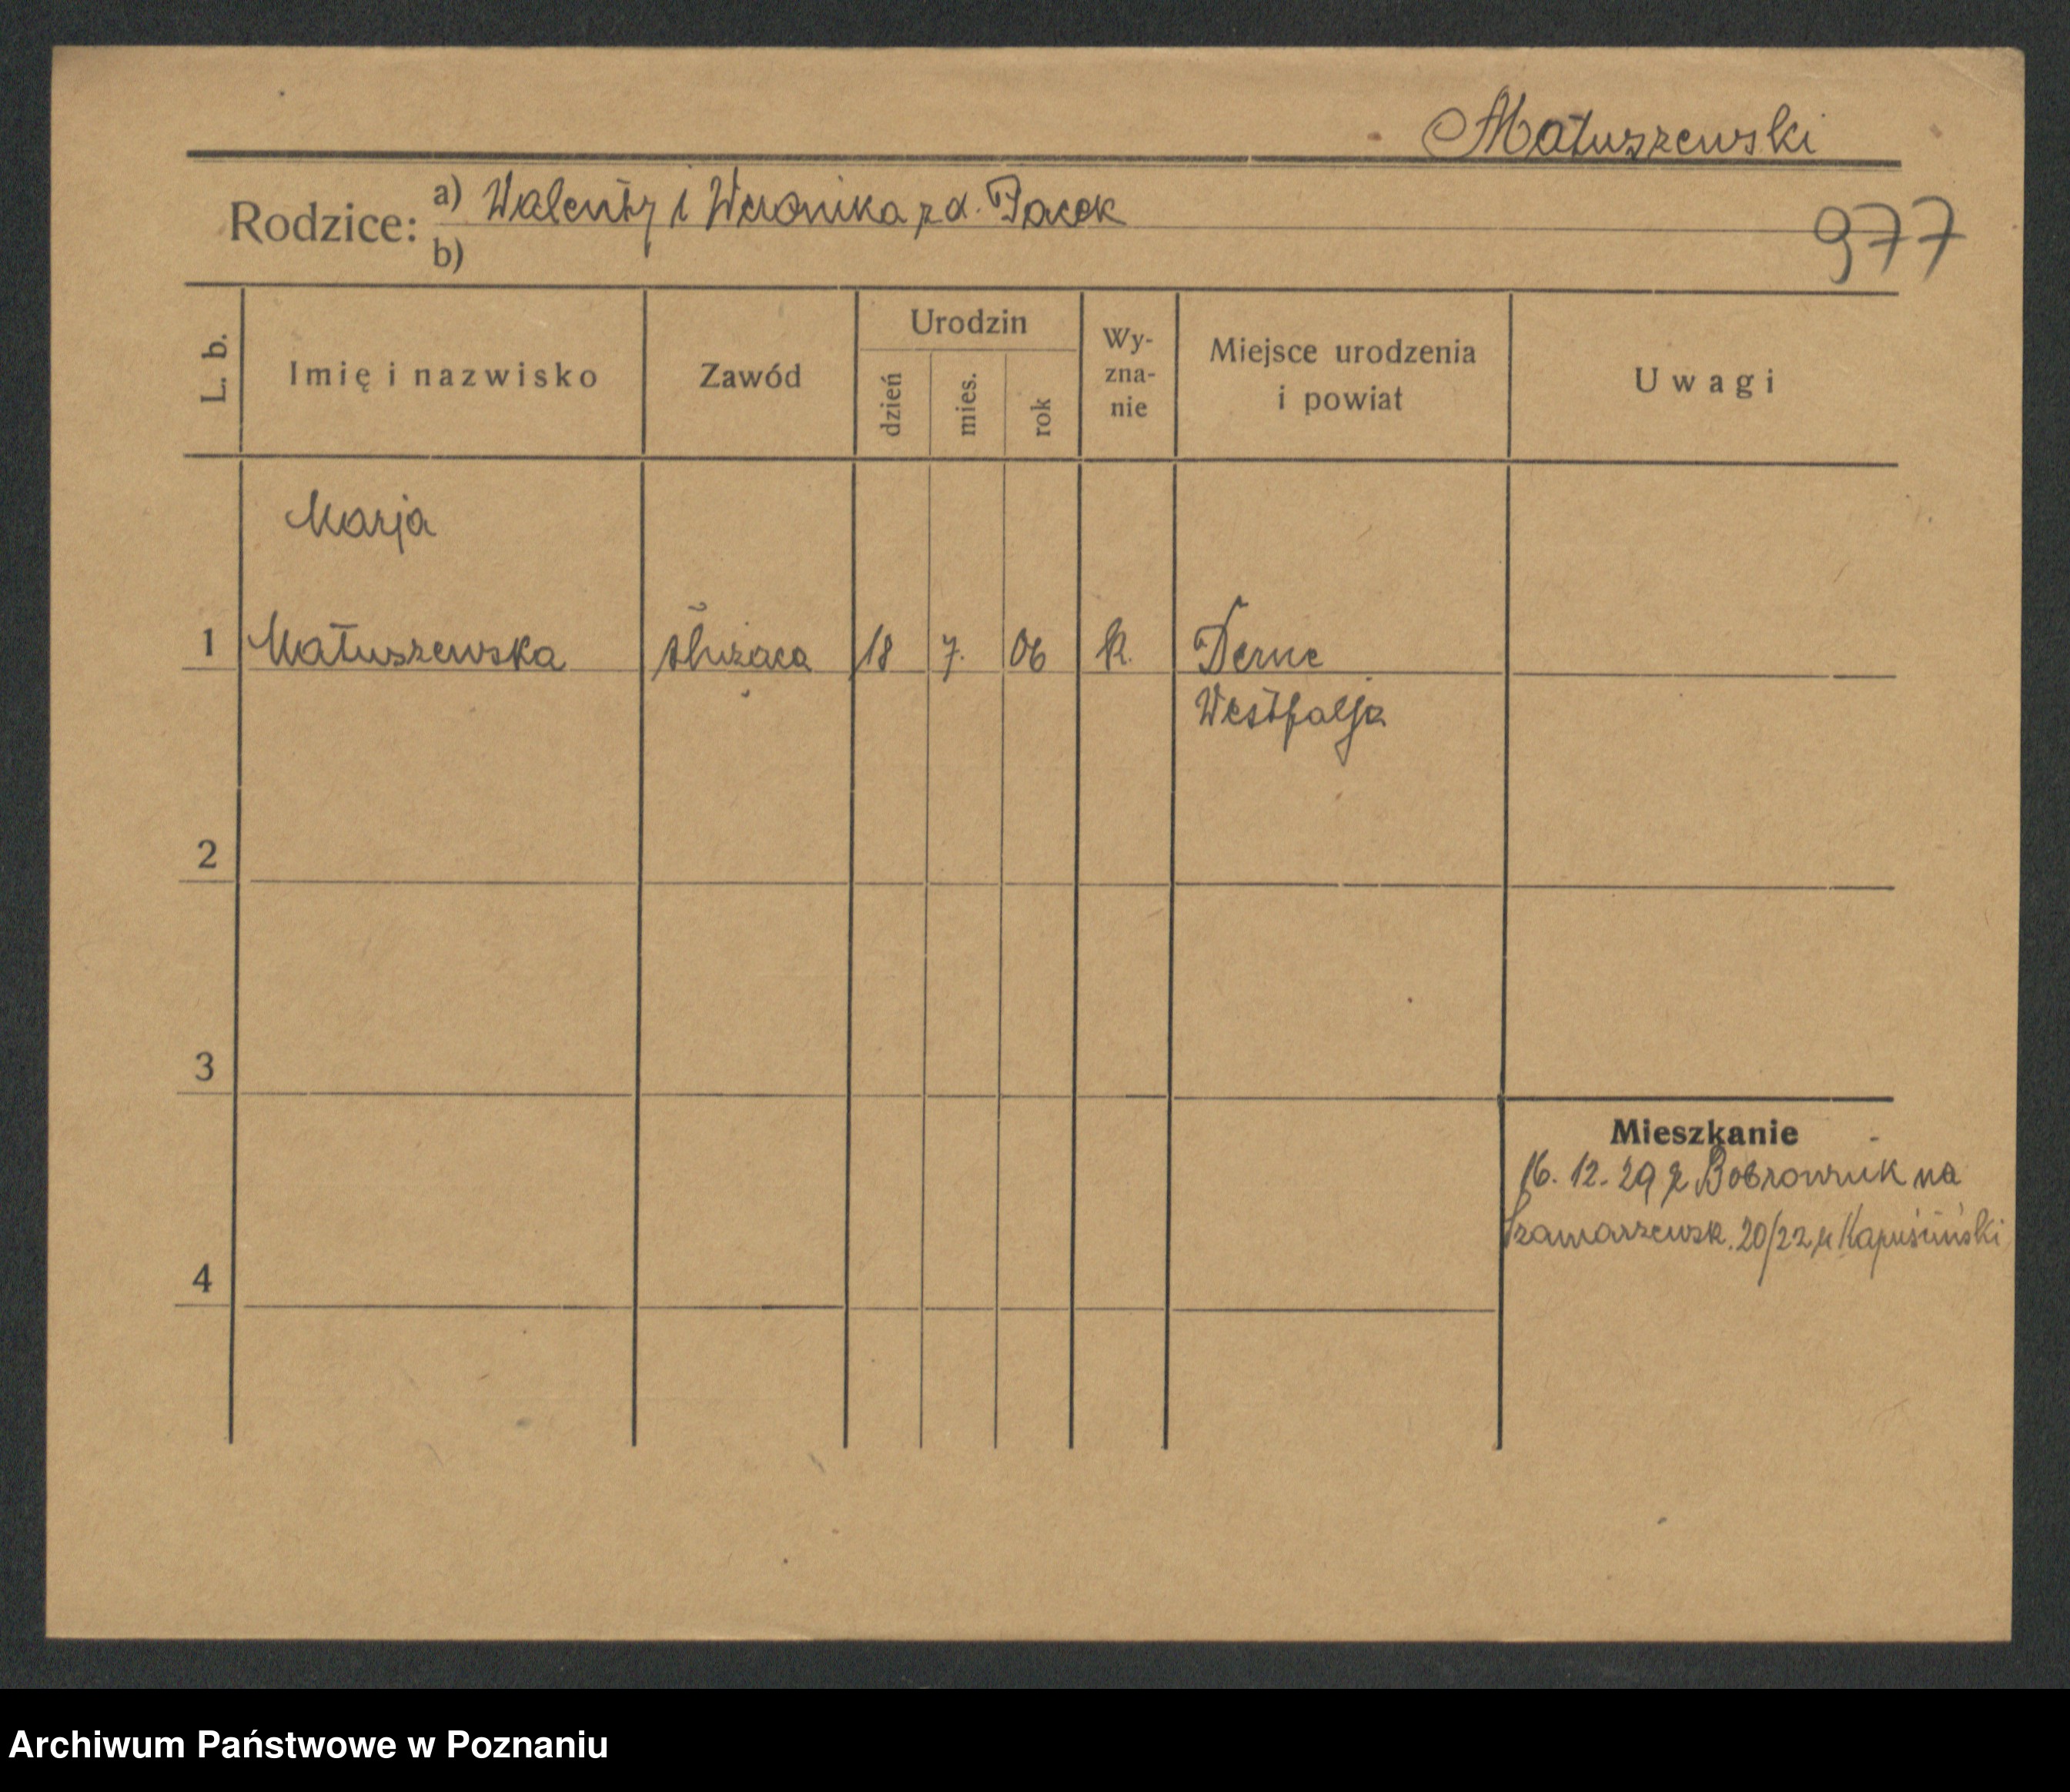 Matuszewski
Rodzice: a) Walenty i Weronika zd. Jacek
b)
977
L. b.
Imię i nazwisko
Zawód
Urodzin
dzień
mies.
rok
Wy-
zna-
nie
Miejsce urodzenia
i powiat
Uwagi
Marja
1 Matuszewska służąca 18 7. 06 k. Derne
Westfalja
2
3
Mieszkanie
16. 12. 29 z Bobrownik na
Szamarzewsk. 20/22 u Kapuściński
4
Archiwum Państwowe w Poznaniu